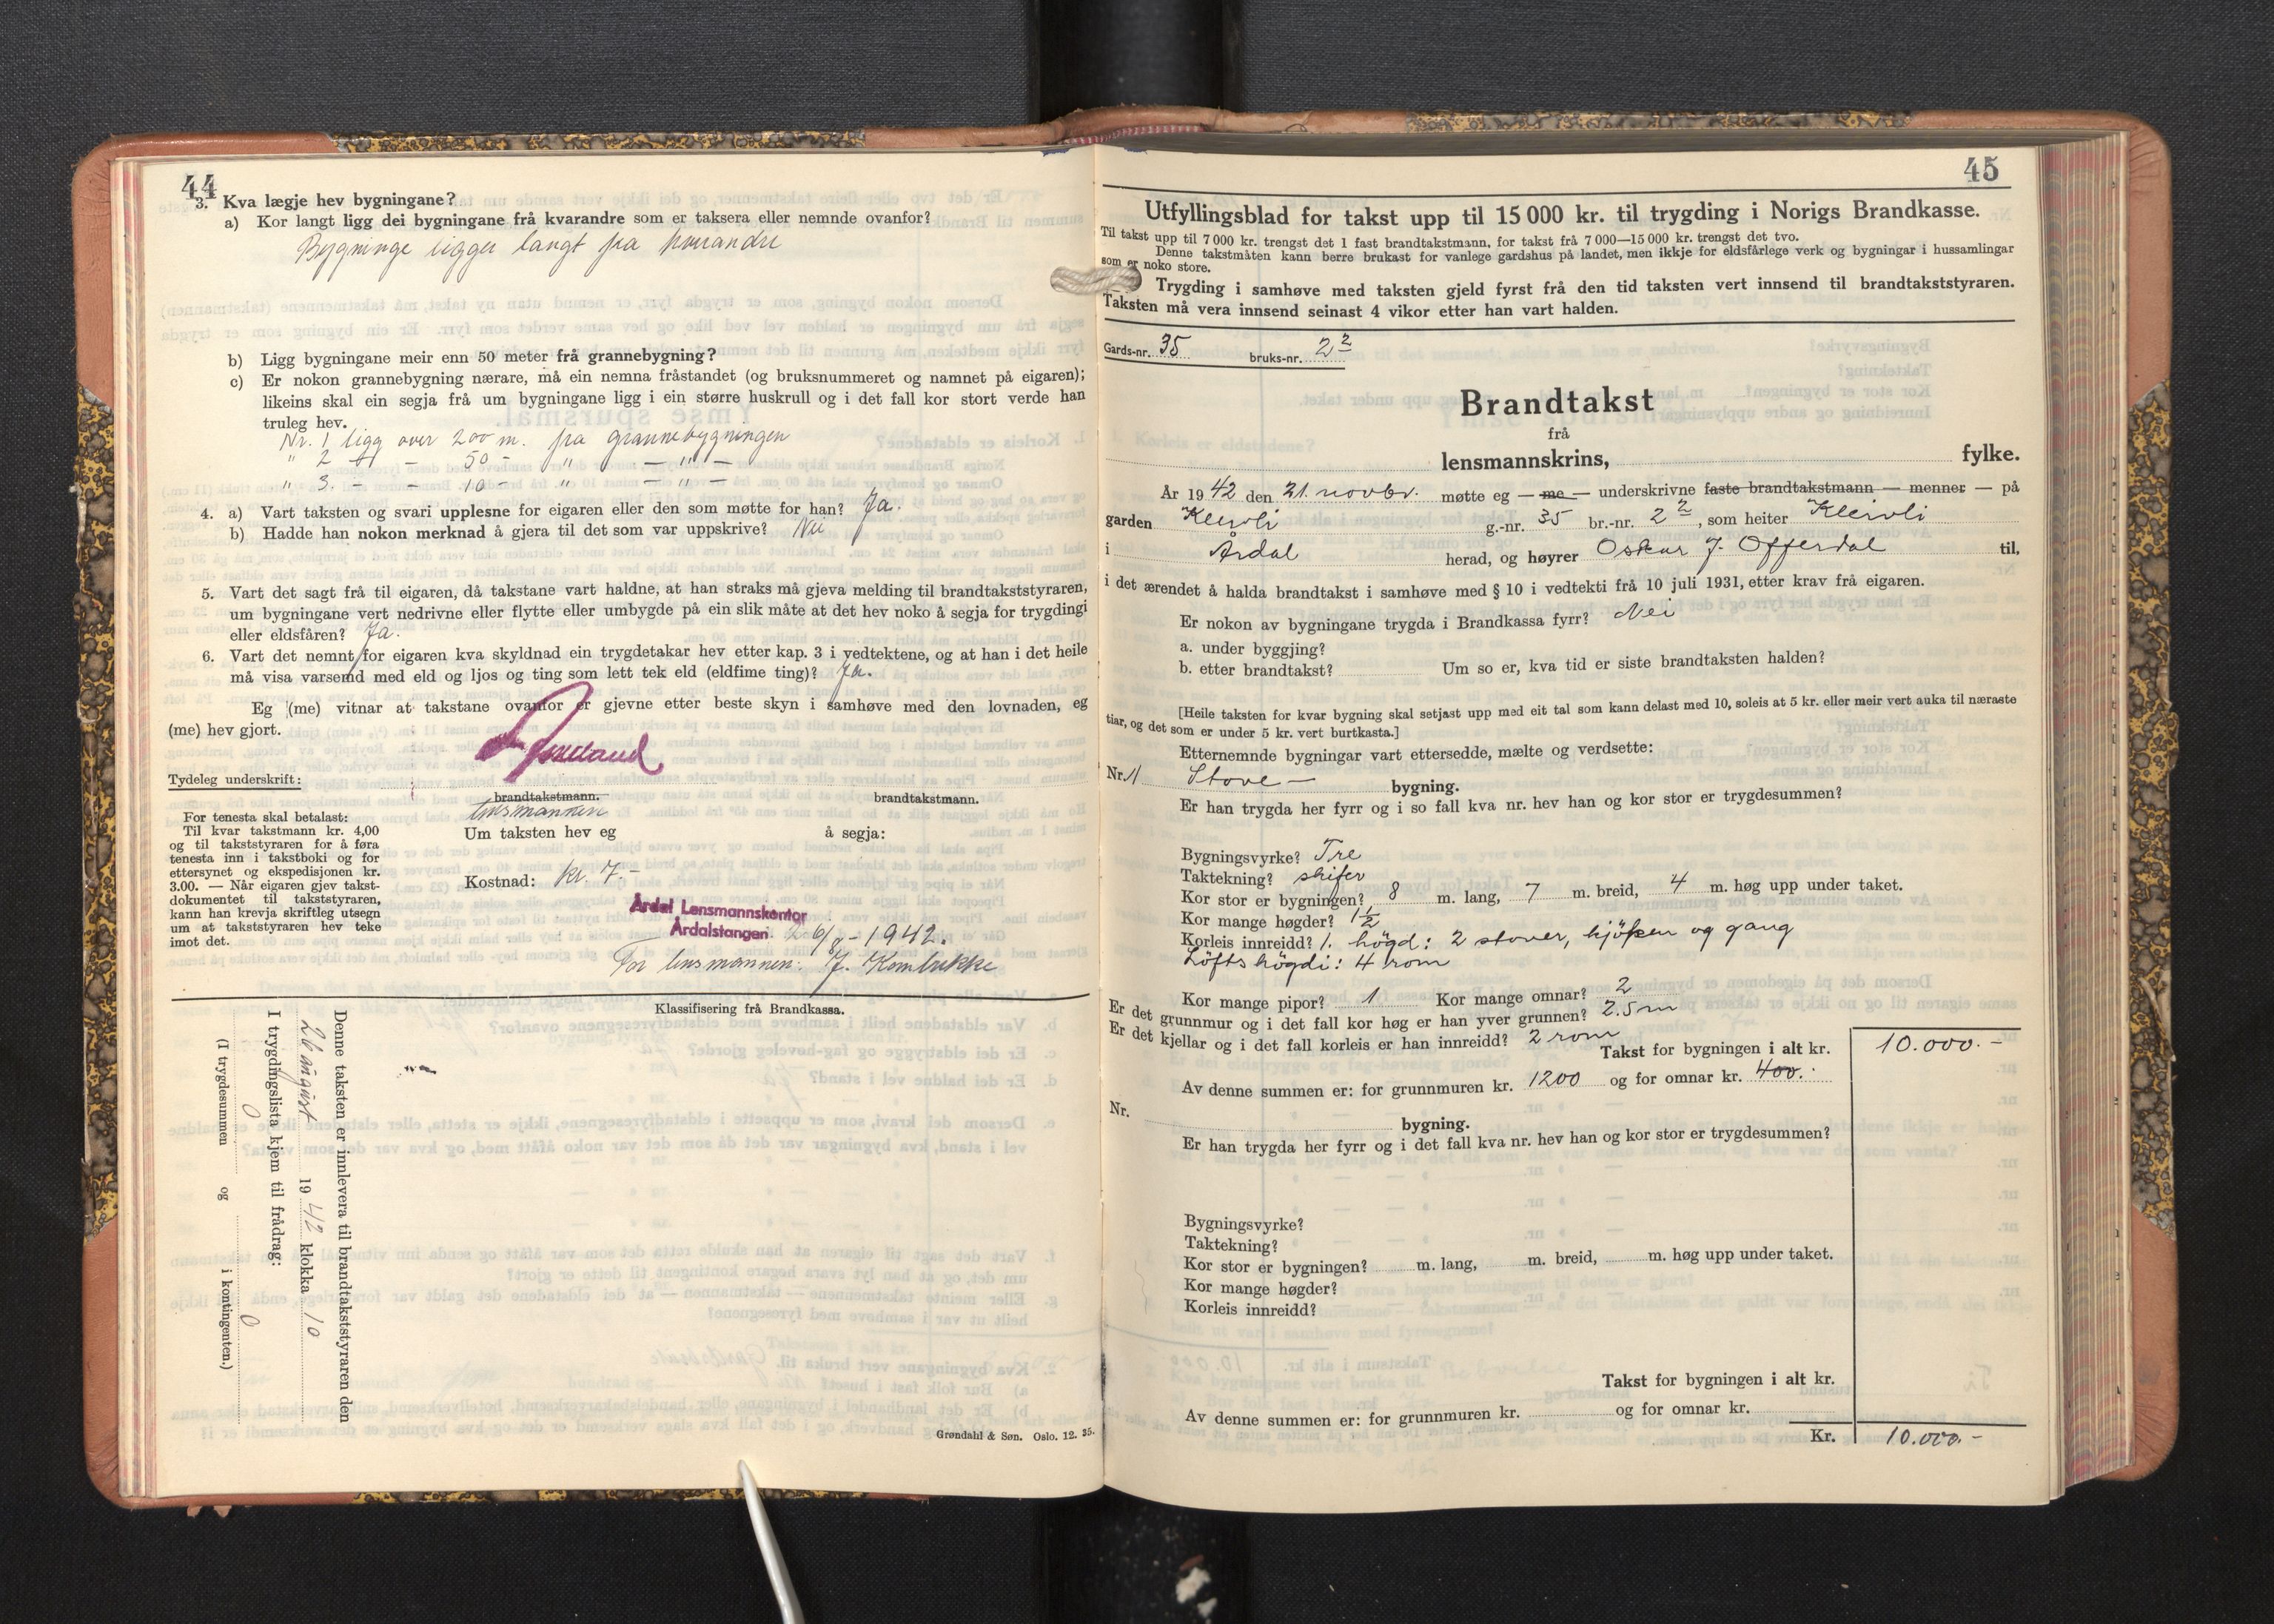 44
3. Kva lægje hev bygningane?
a) Kor langt ligg dei bygningane frå kvarandre som er taksera eller nemnde ovanfor?
Bygninge ligger langt fra kvarandre
b) Ligg bygningane meir enn 50 meter frå grannebygning?
c) Er nokon grannebygning nærare, må ein nemna fråstandet (og bruksnummeret og namnet på eigaren);
likeins skal ein segja frå um bygningane ligg i ein større huskrull og i det fall kor stort verde han
truleg hev.
Nr. 1 ligg over 200 m. fra grannebygningen
" 2 - 50 - " — " —
" 3. - - 10 - " — " —
4. a) Vart taksten og svari upplesne for eigaren eller den som møtte for han? Ja.
b) Hadde han nokon merknad å gjera til det som var uppskrive? Nei
5. Vart det sagt frå til eigaren, då takstane vart haldne, at han straks må gjeva melding til brandtakststyraren,
um bygningane vert nedrivne eller flytte eller umbygde på ein slik måte at det hev noko å segja for trygdingi
eller eldsfåren? Ja.
6. Vart det nemnt for eigaren kva skyldnad ein trygdetakar hev etter kap. 3 i vedtektene, og at han i det heile
må visa varsemd med eld og ljos og ting som lett tek eld (eldfime ting)? Ja.
Eg (me) vitnar at takstane ovanfor er gjevne etter beste skyn i samhøve med den lovnaden, eg
(me) hev gjort.
Tydeleg underskrift:
brandtakstmann. brandtakstmann.
lensmannen
For tenesta skal betalast:
Til kvar takstmann kr. 4,00
og til takststyraren for å føra
tenesta inn i takstboki og for
ettersynet og ekspedisjonen kr.
3.00. — Når eigaren gjev takst-
dokumentet til takststyraren,
kann han krevja skriftleg utsegn
um at takststyraren hev teke
imot det.
Um taksten hev eg å segja:
Kostnad: kr. 7.-
Årdal Lensmannskontor
Årdalstangen. 26/8-1942.
For lensmannen:
Klassifisering frå Brandkassa.
Denne taksten er innlevera til brandtakststyraren den
26 august 1942 klokka 10
I trygdingslista kjem til frådrag:
0 0
(I trygdesummen og i kontingenten.)
Grøndahl & Søn. Oslo. 12. 35.
45
Utfyllingsblad for takst upp til 15 000 kr. til trygding i Norigs Brandkasse.
Til takst upp til 7 000 kr. trengst det 1 fast brandtakstmann, for takst frå 7 000—15 000 kr. trengst det tvo.
Denne takstmåten kann berre brukast for vanlege gardshus på landet, men ikkje for eldsfårlege verk og bygningar i hussamlingar
som er noko store.
Trygding i samhøve med taksten gjeld fyrst frå den tid taksten vert innsend til brandtakststyraren.
Taksten må vera innsend seinast 4 vikor etter han vart halden.
Gards-nr. 35 bruks-nr. 2 2
Brandtakst
frå
lensmannskrins, fylke.
År 1942 den 21. novbr. møtte eg — me — underskrivne faste brandtakstmann — menner — på
garden Kleivli g.-nr. 35 br.-nr. 2 2, som heiter Kleivli
i Årdal herad, og høyrer Oskar J. Offerdal til,
i det ærendet å halda brandtakst i samhøve med § 10 i vedtekti frå 10 juli 1931, etter krav frå eigaren.
Er nokon av bygningane trygda i Brandkassa fyrr? Nei
a. under byggjing?
b. etter brandtakst? Um so er, kva tid er siste brandtaksten halden?
[Heile taksten for kvar bygning skal setjast upp med eit tal som kann delast med 10, soleis at 5 kr. eller meir vert auka til næraste
tiar, og det som er under 5 kr. vert burtkasta.]
Etternemnde bygningar vart ettersedde, mælte og verdsette:
Nr. 1 Stove - bygning.
Er han trygda her fyrr og i so fall kva nr. hev han og kor stor er trygdesummen?
Bygningsvyrke? Tre
Taktekning? skifer
Kor stor er bygningen? 8 m. lang, 7 m. breid, 4 m. høg upp under taket.
Kor mange høgder? 1½
Korleis innreidd? 1. högd: 2 stover, kjöken og gang
Löftshögdi: 4 rom
Kor mange pipor? 1 Kor mange omnar? 2
Er det grunnmur og i det fall kor høg er han yver grunnen? 2.5 m
Er det kjellar og i det fall korleis er han innreidd? 2 rom
Takst for bygningen i alt kr. 10.000.-
Av denne summen er: for grunnmuren kr. 1200 og for omnar kr. 400.-
Nr. bygning.
Er han trygda her fyrr og i det fall kva nr. hev han og kor stor er trygdesummen?
Bygningsvyrke?
Taktekning?
Kor stor er bygningen? m. lang, m. breid, m. høg upp under taket.
Kor mange høgder?
Korleis innreidd?
Takst for bygningen i alt kr.
Av denne summen er: for grunnmuren kr. og for omnar kr.
Kr. 10.000.-